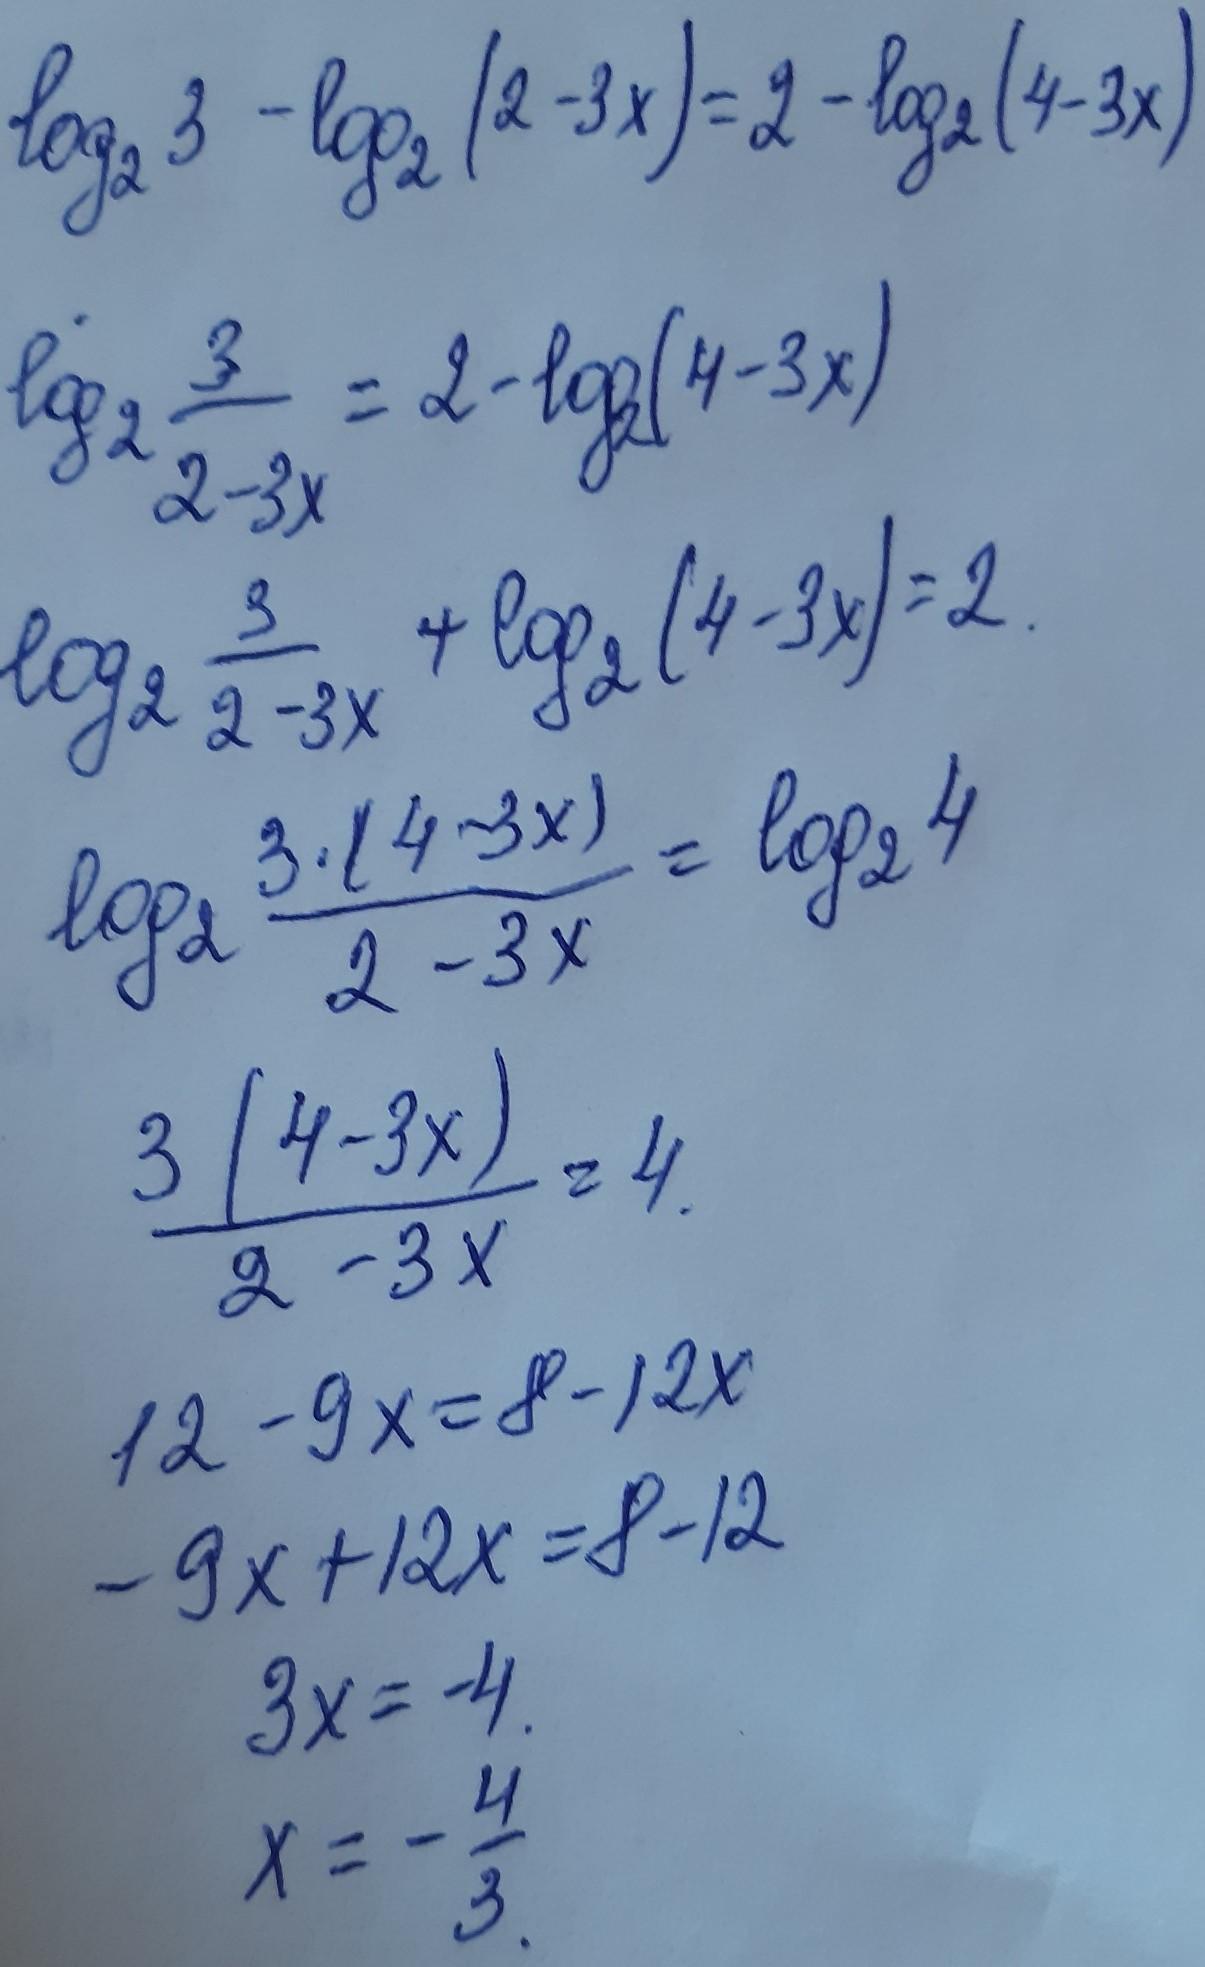 log₂ 3 - log₂ (2 - 3x) = 2 - log₂ (4 - 3x)
log₂ 3/(2 - 3x) = 2 - log₂ (4 - 3x)
log₂ 3/(2 - 3x) + log₂ (4 - 3x) = 2.
log₂ 3·(4 - 3x)/(2 - 3x) = log₂ 4
3(4 - 3x)/(2 - 3x) = 4.
12 - 9x = 8 - 12x
- 9x + 12x = 8 - 12
3x = -4.
x = - 4/3.